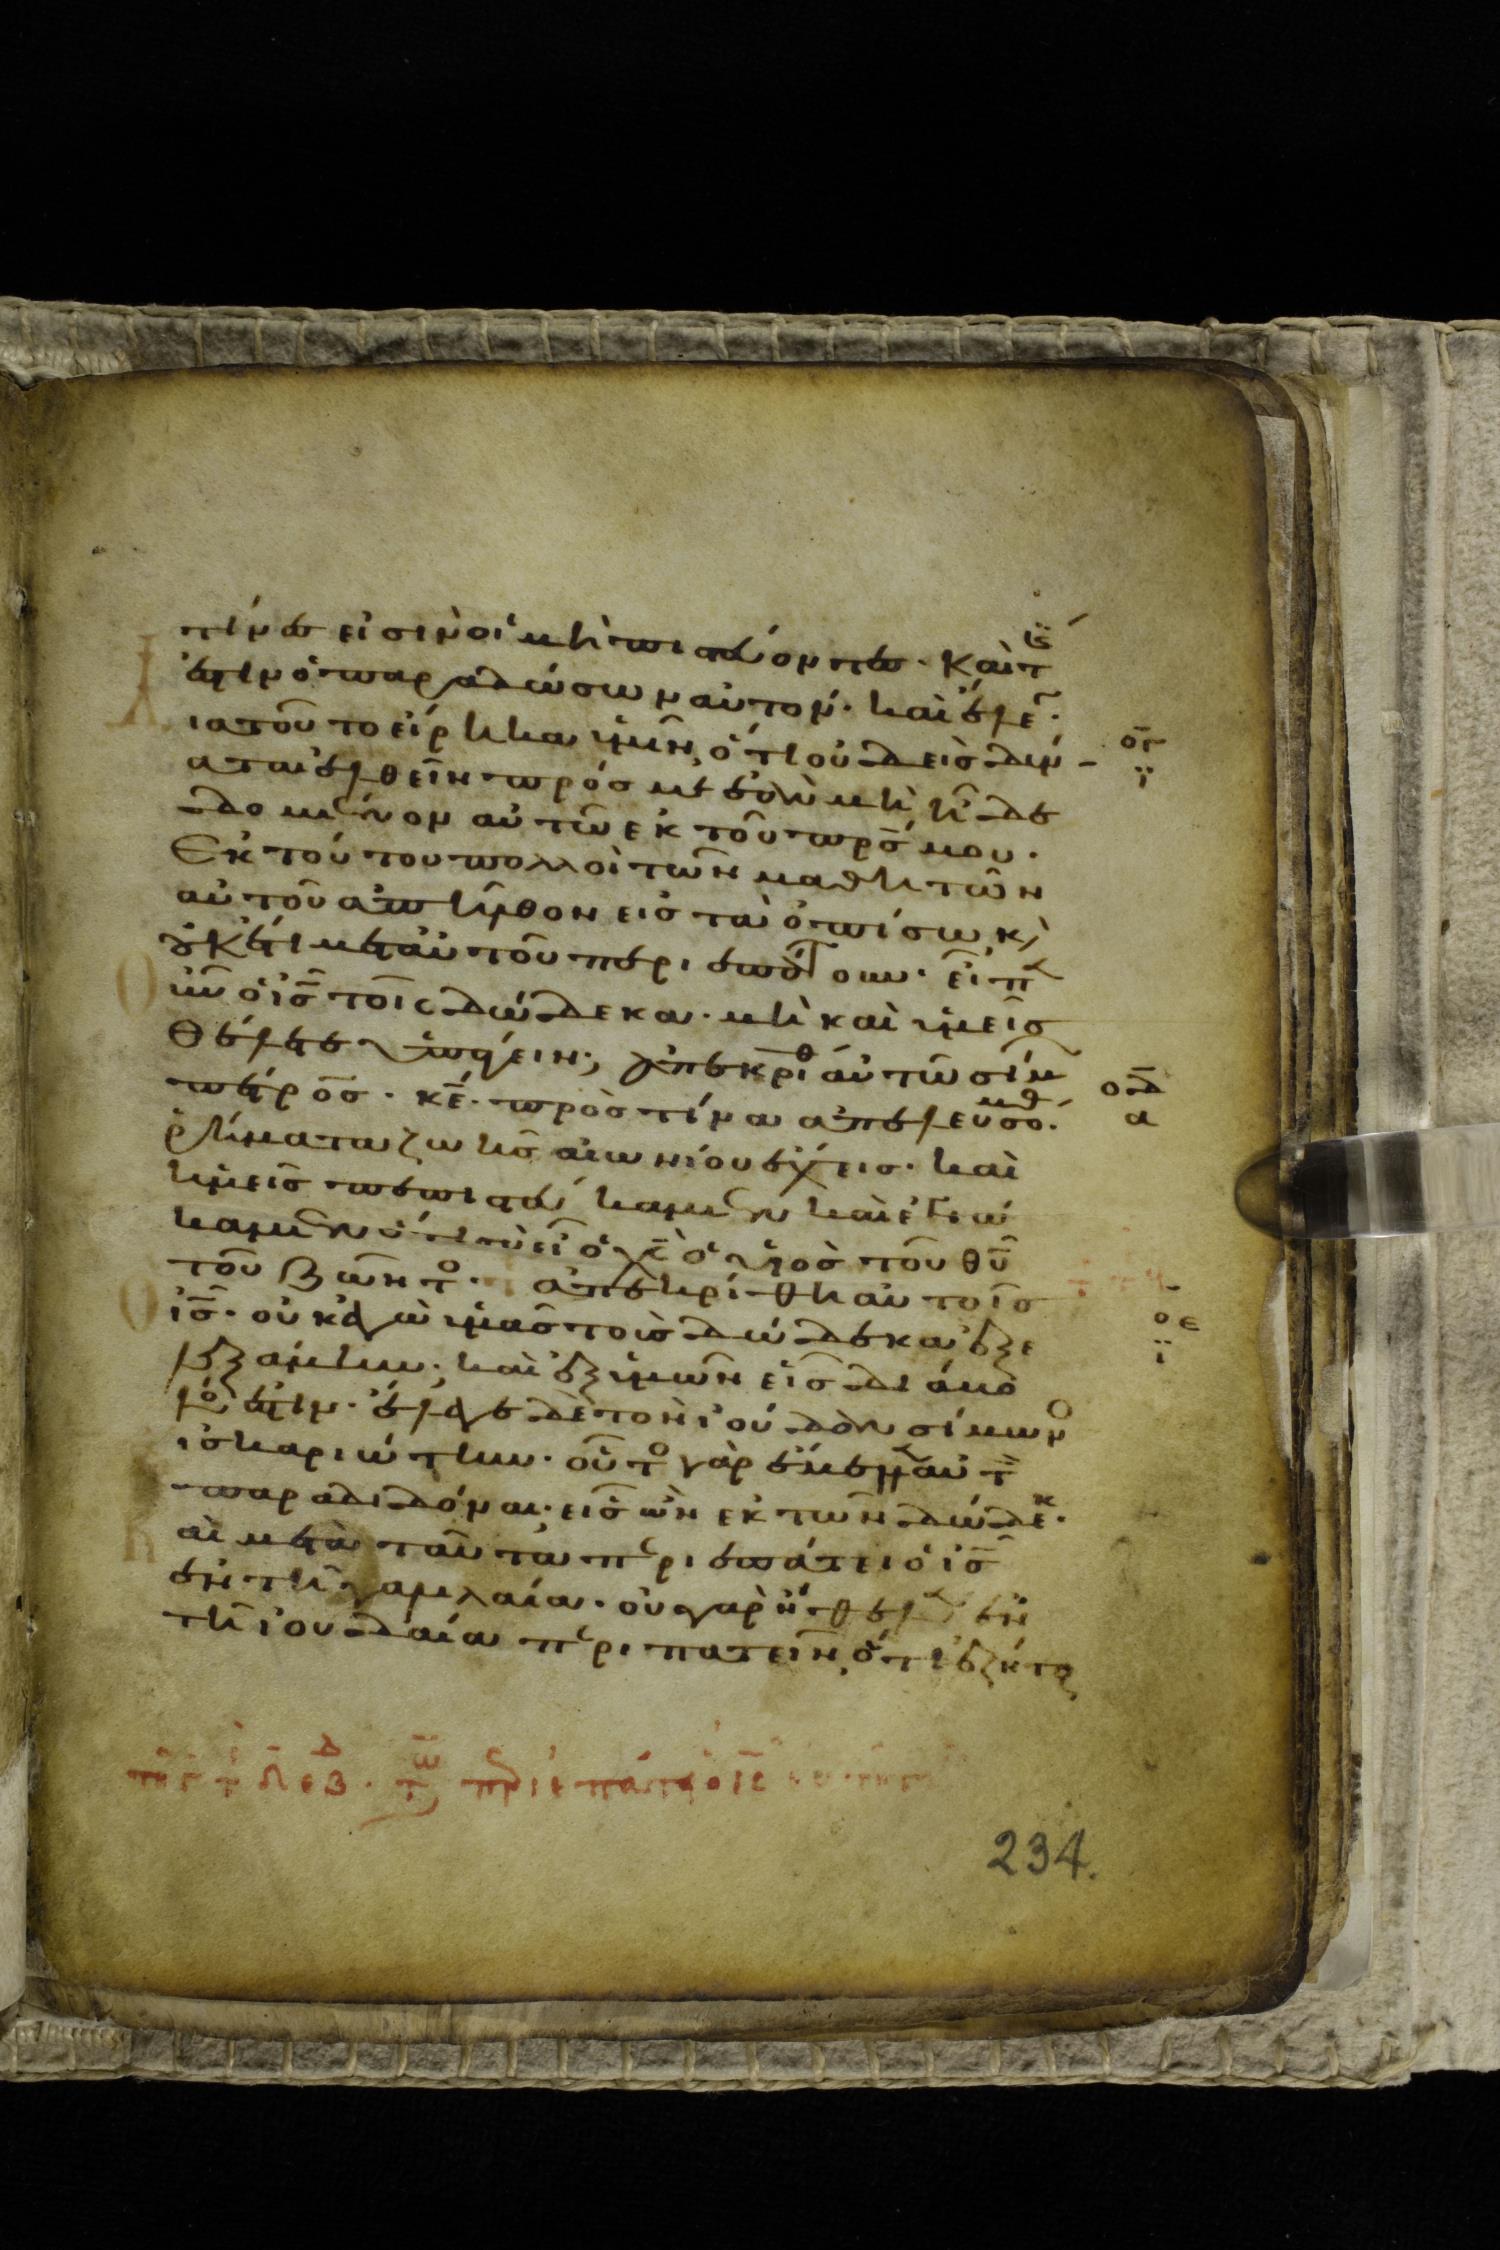 τίνες εἰσὶν οἱ μὴ πιστεύοντες. Καὶ τίς
ἐστιν ὁ παραδώσων αὐτόν. καὶ ἔλε̅.
ιατοῦτο εἴρηκα ὑμῖν, ὅτι οὐδεὶς δύν
ο̅γ
ϊ
αται ἐλθεῖν πρός με ἐὰν μὴ ἦ δε
δομένον αὐτῶ ἐκ τοῦ πρ̅σ μου.
Ἐκ τούτου πολλοὶ τῶν μαθητῶν
αὐτοῦ ἀπῆλθον εἰς τὰ ὀπίσω κ̀
οὐκέτι μετ αὐτοῦ περιεπάτουν. εἶπ
οὖν ὁ ι̅σ̅ τοῖς δώδεκα. μὴ καὶ ὑμεῖς
θέλετε ὑπάγειν; ἀπεκρίθ αὐτῶ σίμ
ο̅δ
α
πέτρος. κ̅ε̅. πρὸς τίνα ἀπελευσόμθ.
ῥήματα ζωῆς αἰωνίου ἔχεις. καὶ
ἡμεῖς πεπιστεύκαμεν καὶ ἐγνώ
καμεν ὅτι σὺ εἶ ὁ χ̅ς̅ ὁ υἱὸς τοῦ θ̅υ̅
τοῦ ζῶντο. ἀπεκρίθη αὐτοῖς
ι̅σ̅. οὐκ ἐγὼ ὑμᾶς τοὺς δώδεκα ἐξε
ο̅ε
ϊ
λεξάμην. καὶ ἐξ ὑμῶν εἷς διάβο
λό ἐστιν. ἔλεγε δὲ τὸν ἰούδαν σίμωνο
ἰσκαριώτην. οὗτο γὰρ ἔμελλεν αὐτὸ
παραδιδόναι. εἷς ὢν ἐκ τῶν δώδεκ.
αὶ μετὰ ταῦτα περιεπάτει ὁ ι̅σ̅
ἐν τῆ γαλιλαία. οὐ γὰρ ἤθελεν ἐν
τῆ ἰουδαία περιπατεῖν, ὅτι ἐζήτ
234.